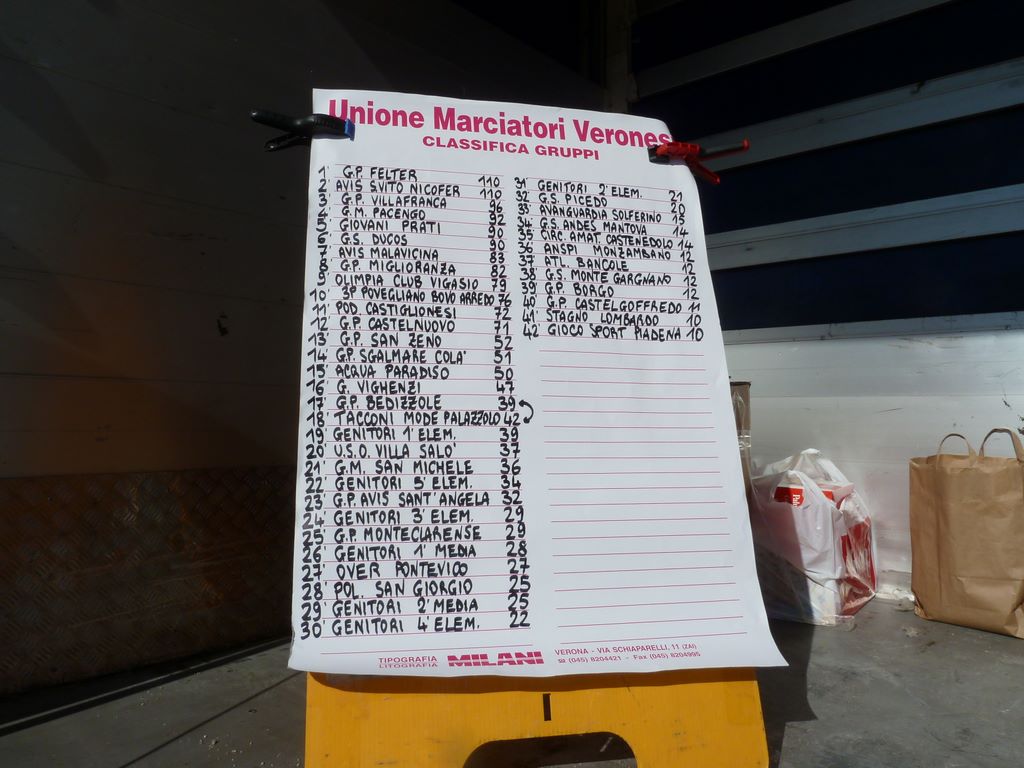 Unione Marciatori Verones
CLASSIFICA GRUPPI
1° G.P. FELTER 110
2° AVIS SVITO NICOFER 110
3° G.P. VILLAFRANCA 96
4° G.M. PACENGO 92
5° GIOVANI PRATI 90
6° G.S. DUCOS 90
7° AVIS MALAVICINA 83
8° G.P. MIGLIORANZA 82
9° OLIMPIA CLUB VIGASIO 79
10° 3P POVEGLIANO BOVO ARREDO 76
11° POD. CASTIGLIONESI 72
12° G.P. CASTELNUOVO 71
13° G.P. SAN ZENO 52
14° G.P. SGALMARE COLA' 51
15° ACQUA PARADISO 50
16° G. VIGHENZI 47
17° G.P. BEDIZZOLE 39
18° TACCONI MODE PALAZZOLO 42
19° GENITORI 1° ELEM. 39
20° U.S.O. VILLA SALO' 37
21° G.M. SAN MICHELE 36
22° GENITORI 5° ELEM. 34
23° G.P. AVIS SANT'ANGELA 32
24° GENITORI 3° ELEM. 29
25° G.P. MONTECLARENSE 29
26° GENITORI 1° MEDIA 28
27° OVER PONTEVICO 27
28° POL. SAN GIORGIO 25
29° GENITORI 2° MEDIA 25
30° GENITORI 4° ELEM. 22
31° GENITORI 2° ELEM. 21
32° G.S. PICEDO 20
33° AVANGUARDIA SOLFERINO 15
34° G.S. ANDES MANTOVA 14
35° CIRC. AMAT. CASTENEDOLO 14
36° ANSPI MONZAMBANO 12
37° ATL. BANCOLE 12
38° G.S. MONTE GARGNANO 12
39° G.P. BORGO 12
40° G.P. CASTELGOFFREDO 11
41° STAGNO LOMBARDO 10
42° GIOCO SPORT PIADENA 10
TIPOGRAFIA
LITOGRAFIA
MILANI
VERONA - VIA SCHIAPARELLI, 11 (ZAI)
☎ (045) 8204421 - Fax (045) 8204995